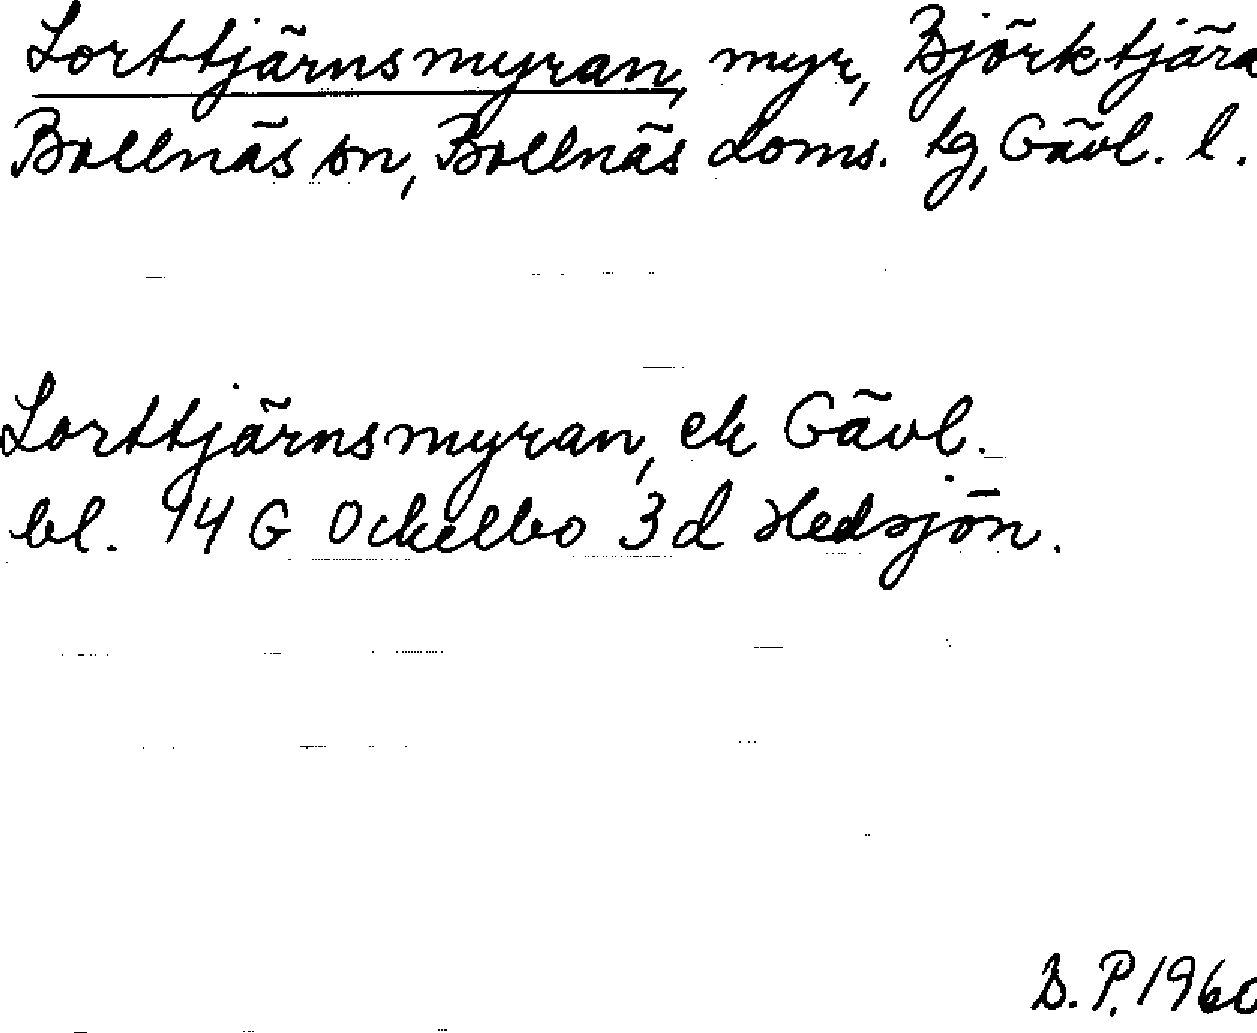 Lorttjärnsmyran, myr, Björktjära
Bollnäs sn, Bollnäs doms. tg, Gävl. l.
Lorttjärnsmyran, ek Gävl.
bl. 14 G Ockelbo 3d Hedsjön.
B. P. 1960